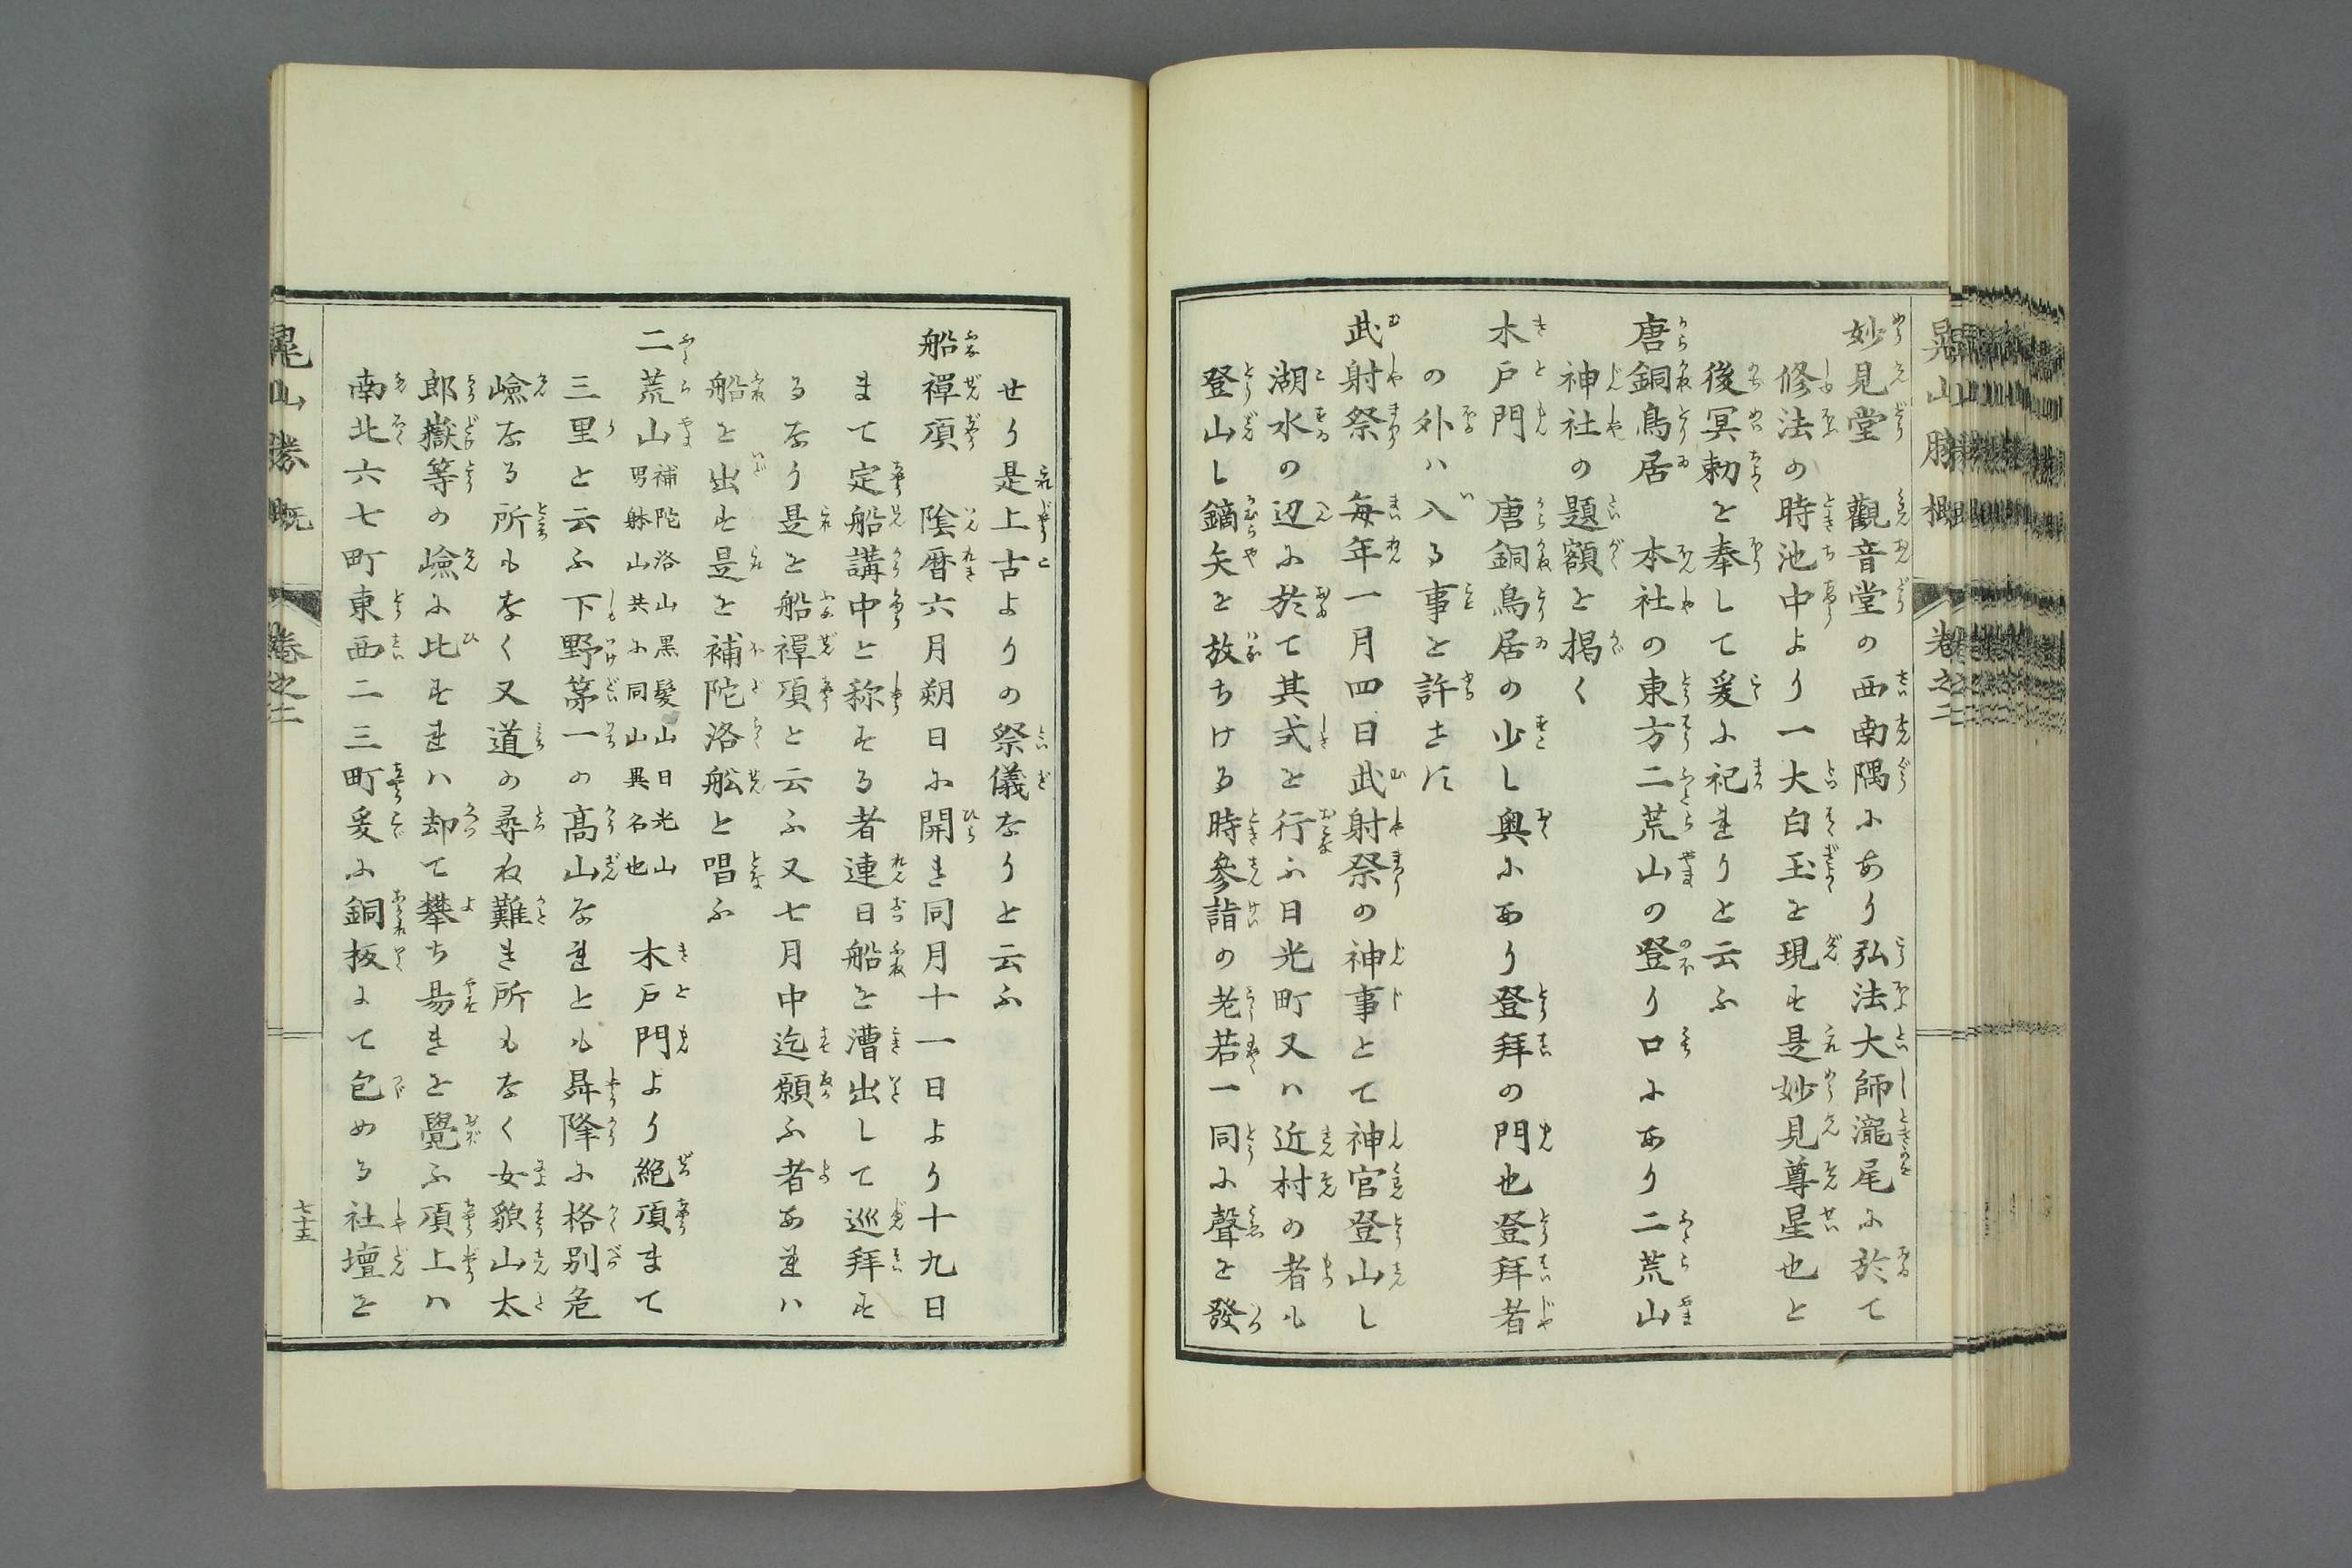 晃山勝概
卷之二
妙見堂 觀音堂の西南隅にあり弘法大師瀧尾に於て
修法の時池中より一大白玉を現す是妙見尊星也と
後冥勅を奉して爰に祀れりと云ふ
唐銅鳥居 本社の東方二荒山の登り口にあり二荒山
神社の題額を掲く
木戸門 唐銅鳥居の少し奥にあり登拜の門也登拜者
の外ハ入る事を許さす
武射祭 每年一月四日武射祭の神事とて神官登山し
湖水の辺に於て其式を行ふ日光町又ハ近村の者も
登山し鏑矢を放ちける時參詣の老若一同に聲を發
せり是上古よりの祭儀なりと云ふ
船禪頂 陰暦六月朔日に開き同月十一日より十九日
まて定船講中と称する者連日船を漕出して巡拜す
るなり是を船禪頂と云ふ又七月中迄願ふ者あれハ
船を出す是を補陀洛舩と唱ふ
二荒山 補陀洛山黒髮山日光山男躰山共に同山異名也 木戸門より絶頂まて
三里と云ふ下野第一の髙山なれとも昇降に格別危
嶮なる所もなく又道の尋ね難き所もなく女貌山太
郎嶽等の嶮に比すれハ却て攀ち易きを覺ふ頂上ハ
南北六七町東西二三町爰に銅板にて包める社壇を
晃山勝概
卷之二
七十五